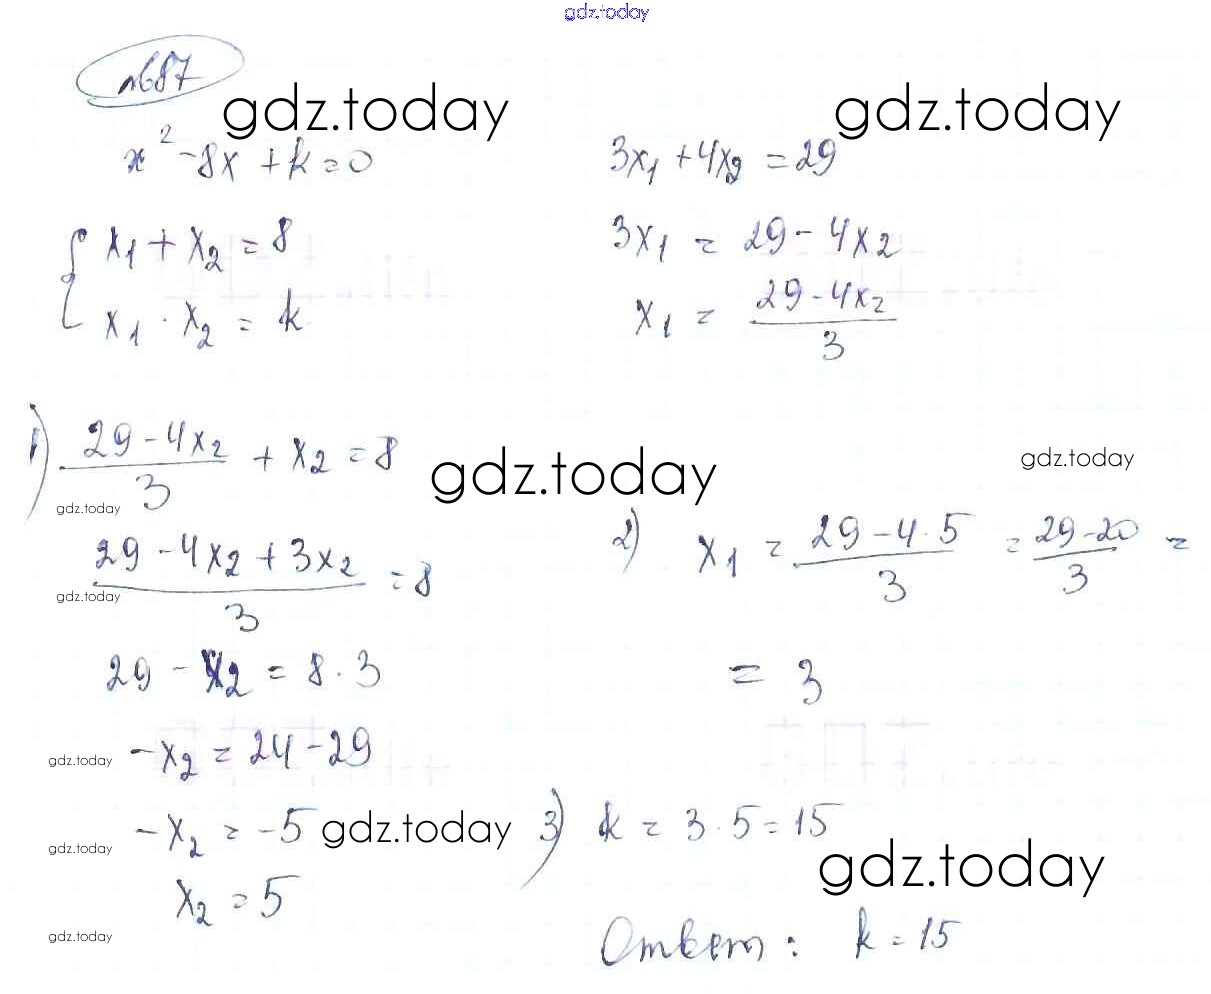 gdz.today
№687
gdz.today gdz.today
x² - 8x + k = 0
3x₁ + 4x₂ = 29
{ x₁ + x₂ = 8
x₁ · x₂ = k
3x₁ = 29 - 4x₂
x₁ = (29 - 4x₂)/3
1) (29 - 4x₂)/3 + x₂ = 8
gdz.today gdz.today
gdz.today
(29 - 4x₂ + 3x₂)/3 = 8
gdz.today
29 - x₂ = 8 · 3
- x₂ = 24 - 29
gdz.today
- x₂ = -5
gdz.today
gdz.today
x₂ = 5
gdz.today
2) x₁ = (29 - 4 · 5)/3 = (29 - 20)/3 =
= 3
3) k = 3 · 5 = 15
gdz.today
Ответ: k = 15